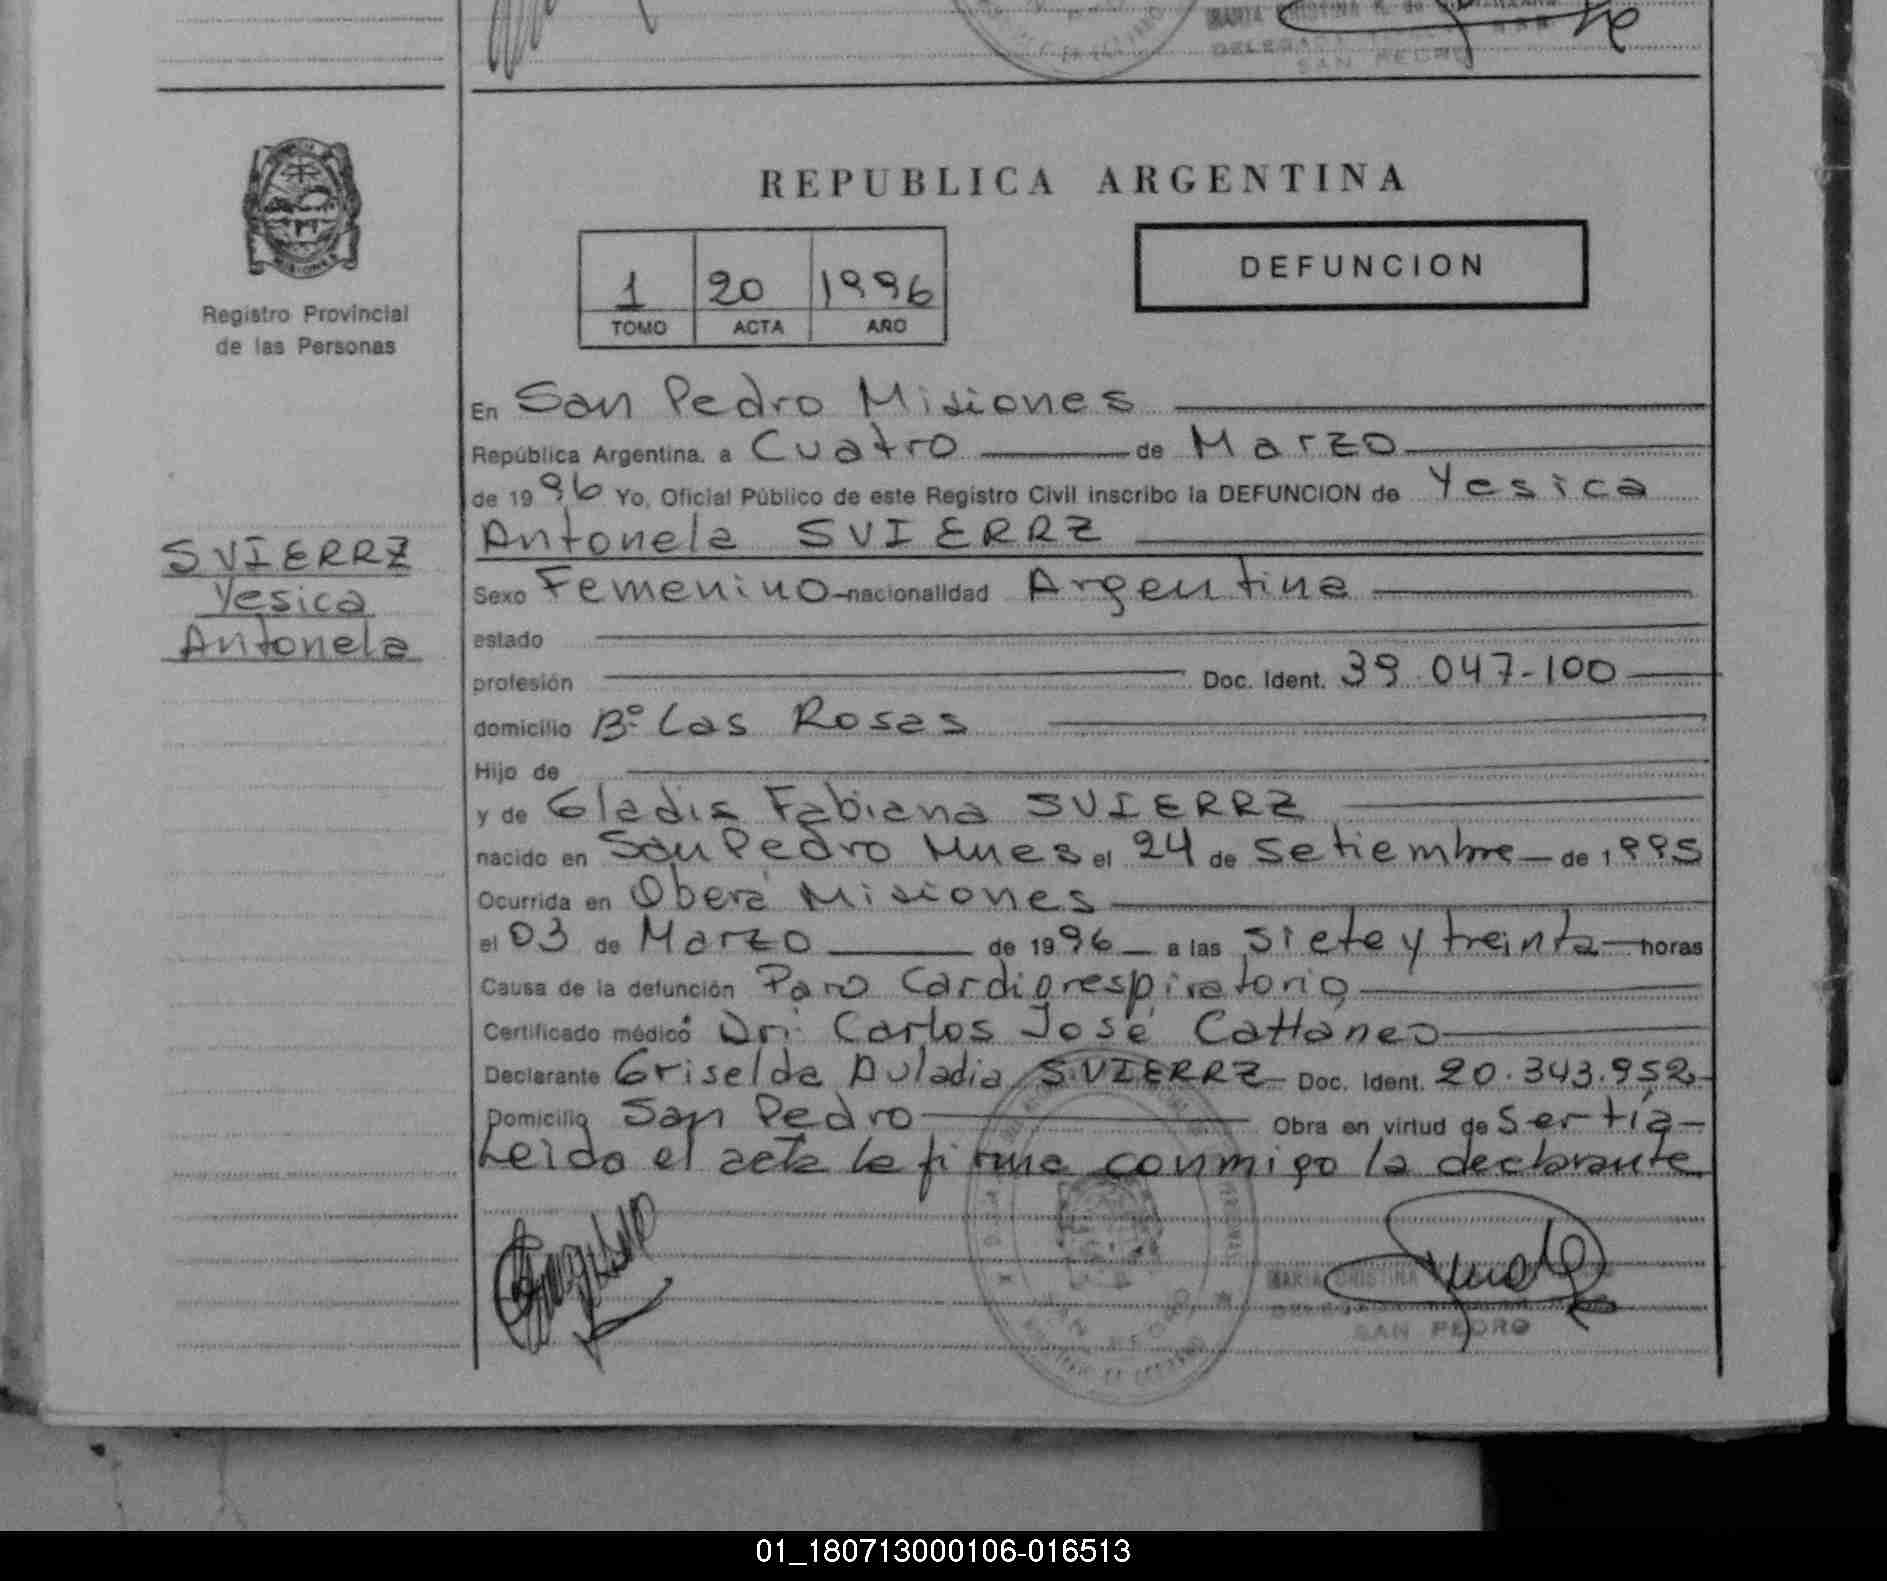 SAN PEDRO
REPUBLICA ARGENTINA
DEFUNCION
1 20 1996
TOMO ACTA AÑO
Registro Provincial
de las Personas
SVIERRZ
Yesica
Antonela
En San Pedro Misiones
República Argentina, a Cuatro de Marzo
de 1996 Yo, Oficial Público de este Registro Civil inscribo la DEFUNCION de Yesica
Antonela SVIERRZ
Sexo Femenino nacionalidad Argentina
estado
profesión Doc. Ident. 39.047-100
domicilio Bº Las Rosas
Hijo de
y de Gladis Fabiana SVIERRZ
nacido en San Pedro Mnes el 24 de Setiembre de 1995
Ocurrida en Oberá Misiones
el 03 de Marzo de 1996 a las siete y treinta horas
Causa de la defunción Paro Cardiorespiratorio
Certificado médico Dr: Carlos José Cattáneo
Declarante Griselda Auladia SVIERRZ Doc. Ident. 20.343.952
Domicilio San Pedro Obra en virtud de Ser tía
Leida el acta la firma conmigo la declarante
MARIA CRISTINA
SAN PEDRO
01_180713000106-016513